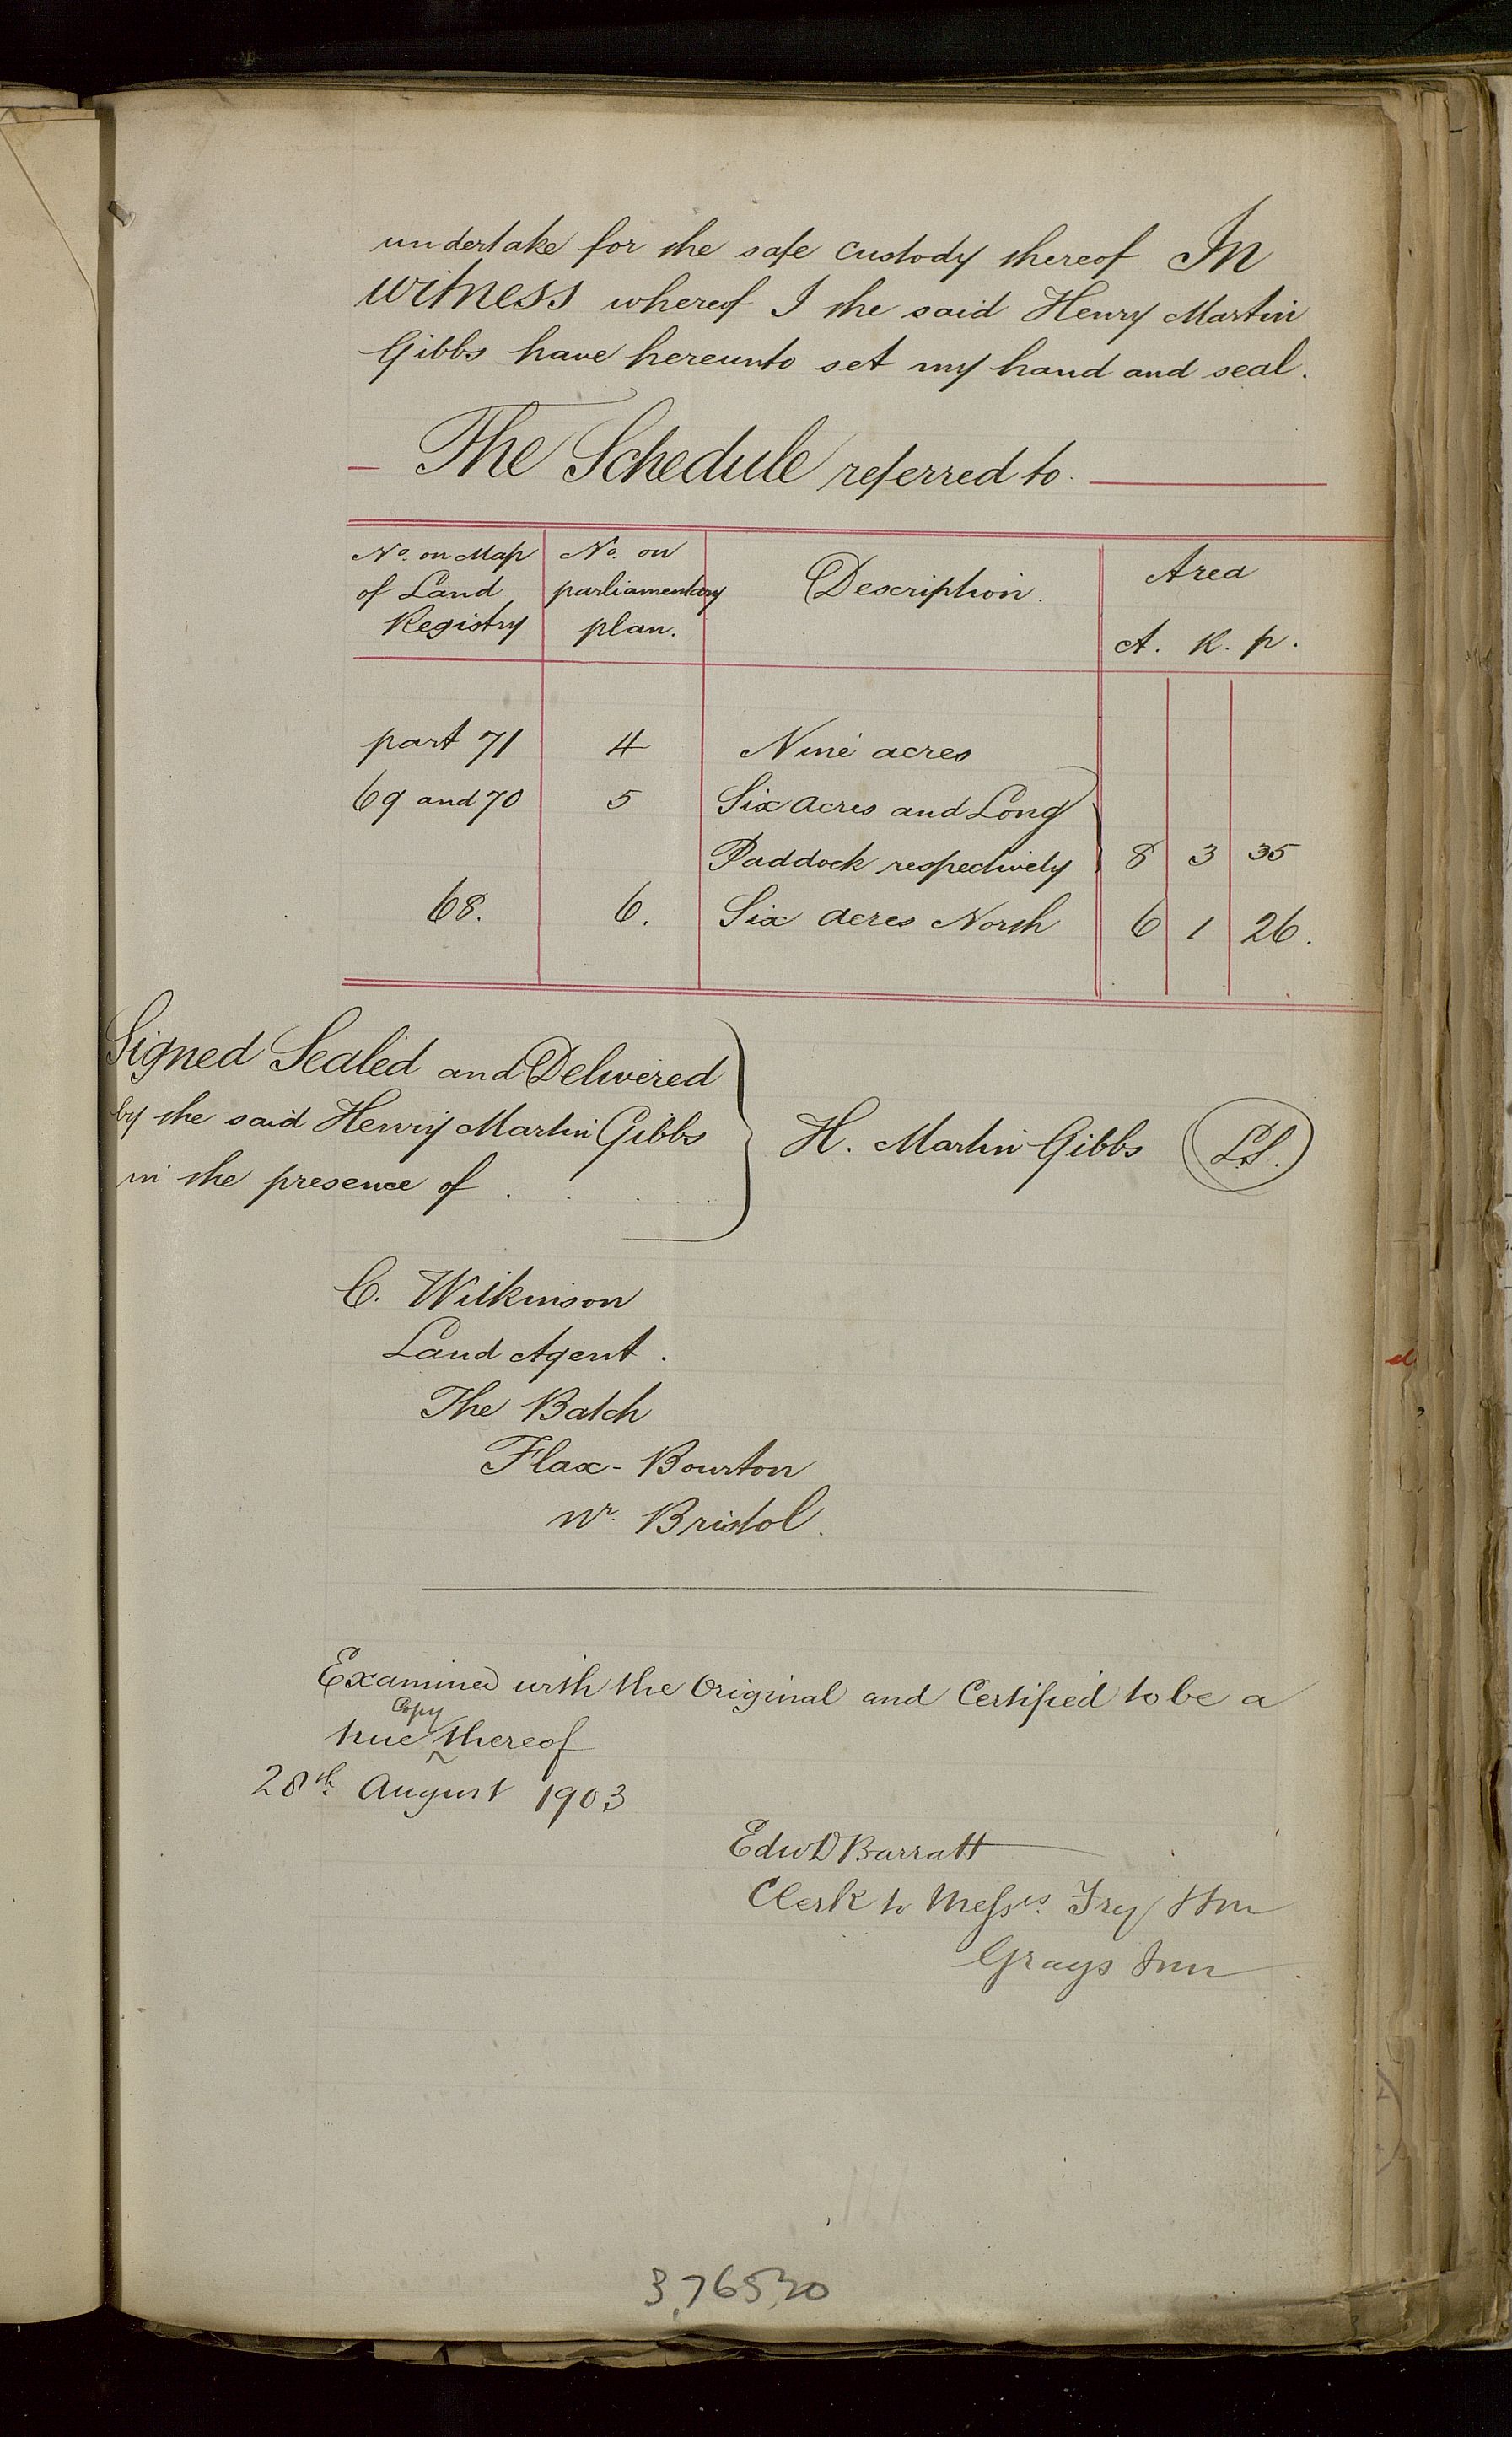 undertake for the safe custody thereof In
witness whereof I the said Henry Martin
Gibbs have hereunto set my hand and seal.
The Schedule referred to.
No. on Map of Land Registry | No. on parliamentary plan. | Description. | Area A. R. p.
part 71 | 4 | Nine acres
69 and 70 | 5 | Six acres and Long
Paddock respectively } 8 | 3 | 35
68. | 6. | Six acres North | 6 | 1 | 26.
Signed Sealed and Delivered
by the said Henry Martin Gibbs
in the presence of . . . .
H. Martin Gibbs (L.S.)
C. Wilkinson
Land Agent.
The Batch
Flax-Bourton
Nr. Bristol.
Examined with the Original and Certified to be a
true Copy thereof
28th. August 1903
Edwd Barratt
Clerk to Messrs. Fry
Grays Inn